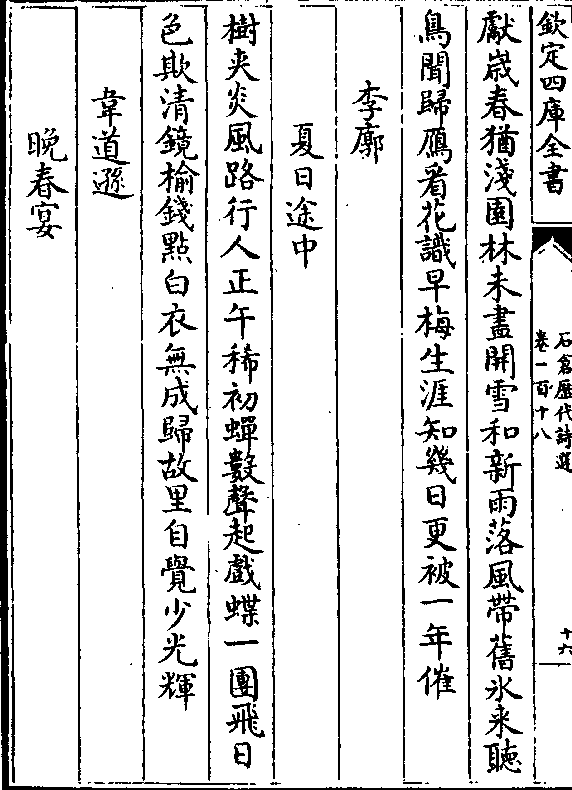 欽定四庫全書
石倉歷代詩選
卷一百十八
十六
獻歲春猶淺園林未盡開雪和新雨落風帶舊氷來聽
鳥聞歸鴈看花識早梅生涯知幾日更被一年催
李廓
夏日途中
樹夾炎風路行人正午稀初蟬數聲起戲蝶一團飛日
色欺清鏡榆錢點白衣無成歸故里自覺少光輝
韋道遜
晚春宴